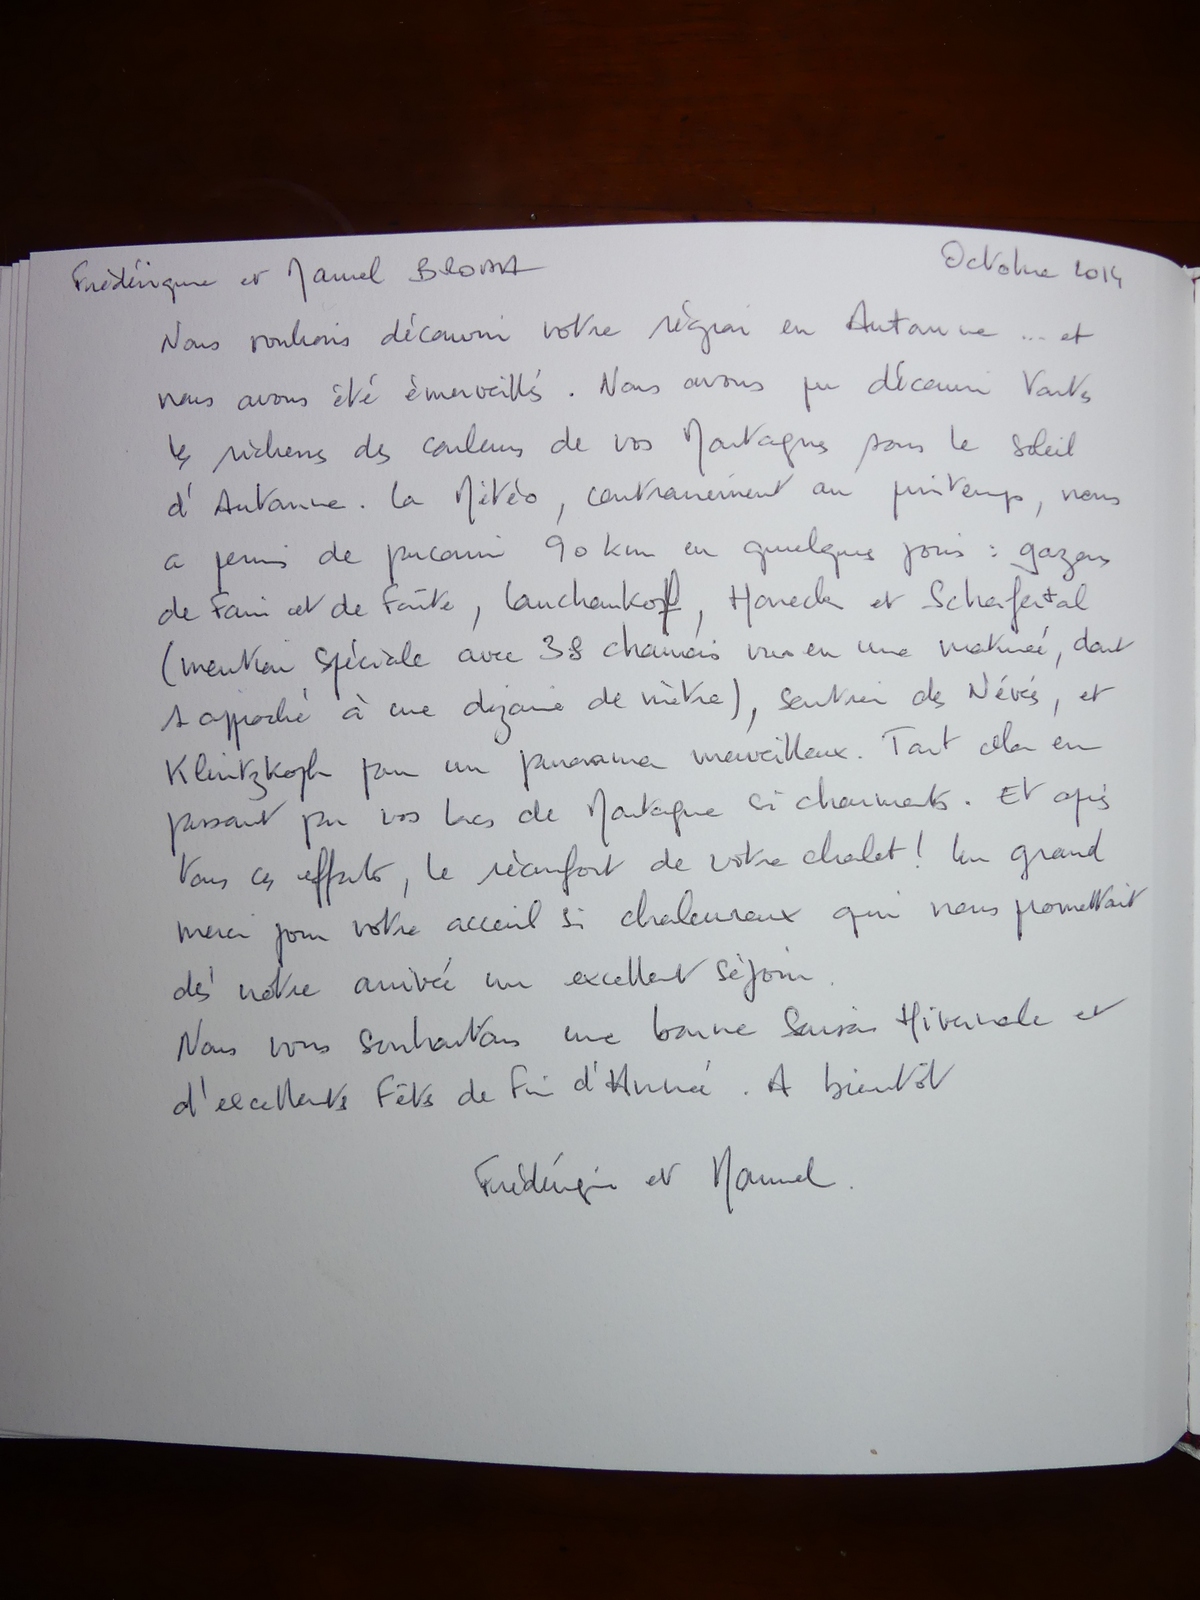 Frédérique et Manuel Octobre 2014
Nous voulions découvrir votre région en Automne ... et
nous avons été émerveillés. Nous avons pu découvrir toutes
les richesses des couleurs de vos Montagnes sous le soleil
d'Automne. La Météo, contrairement au printemps, nous
a permis de parcourir 90 km en quelques jours : gazons
de Faing et de Faîte, Lauchenkopf, Honeck et Schäfertal
(mention spéciale avec 38 chamois vus en une matinée, dont
1 approché à une dizaine de mètre), sentier des Névés, et
Klintzkopf pour un panorama merveilleux. Tout cela en
passant par vos lacs de Montagne si charmants. Et après
tous ces efforts, le réconfort de votre chalet ! Un grand
merci pour votre acceuil si chaleureux qui nous promettait
dès notre arrivée un excellent séjour.
Nous vous souhaitons une bonne Saison Hivernale et
d'excellentes Fêtes de Fin d'Année. A bientôt
Frédérique et Manuel.